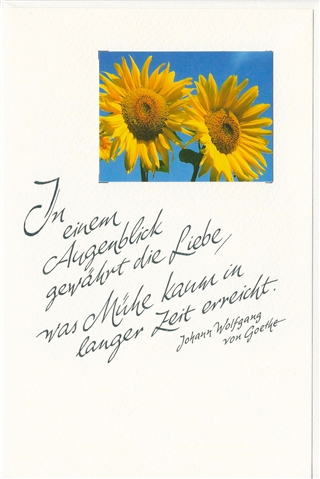 In
einem
Augenblick
gewährt die Liebe,
was Mühe kaum in
langer Zeit erreicht.
Johann Wolfgang
von Goethe